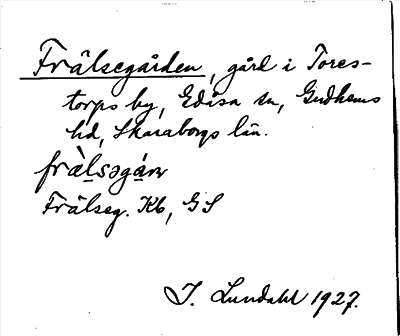 Frälsegården, gård i Tores-
torps by, Edåsa sn, Gudhems
hd, Skaraborgs län.
frälsəgán
Frälseg. Kb, GS
I. Lundahl 1927.